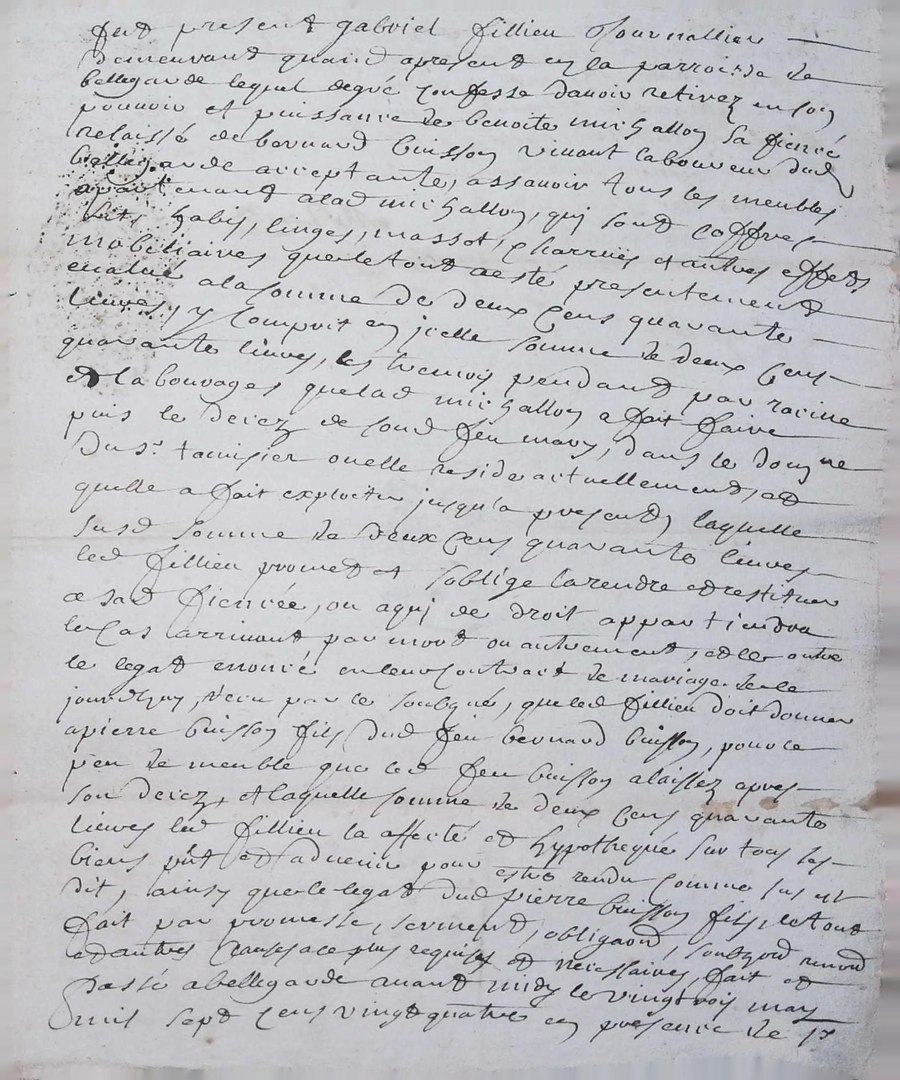 fut present gabriel fillieu Journallier
demeurant quand apresent en la parroisse de
bellegarde lequel degré confesse davoir retirez en son
pouvoir et puissance de benoite michallon sa fiencée
relaissé de bernard buisson vivant laboureur dud
bellegarde acceptante, assavoir tous les meubles
apartenant alad michallon, qui sont coffres
lits, habis, linges, massot, charrues et autres effets
mobiliaires que le tout a esté presentement
evalué ala somme de deux cens quarante
livres, y compris en jcelle somme de deux cens
quarante livres, les tremois pendant par racine
et labourages que lad michallon a fait faire
puis le decez de soud feu mary, dans le domayne
du sr tamisier ou elle reside actuellement, et
quelle a fait exploiter jusqu'a present, laquelle
susd somme de deux cens quarante livres
led fillieu promet et soblige la rendre et restituer
a sad fiencée, ou a qui de droit appartiendra
le cas arrivant par mort ou autrement, et ce outre
le legat enoncé en leur contract de mariage de ce
jourdhuy, receu par le soubgné, que led fillieu doit donner
a pierre buisson fils dud feu bernard buisson, pour ce
peu de meuble que led feu buisson a laissez apres
son decez, et laquelle somme de deux cens quarante
livres led fillieu la affecté et hypothequé sur tous les
biens pnt et advenir pour estre rendu comme sus est
dit, ainsy que le legat dud pierre buisson fils, le tout
fait par promesse, serment, obligaon, renond
et autres clauses a ce plus requises et necessaires, fait et
passé a bellegarde avant midy le vingt trois may
mil sept cens vingt quatre en presence de